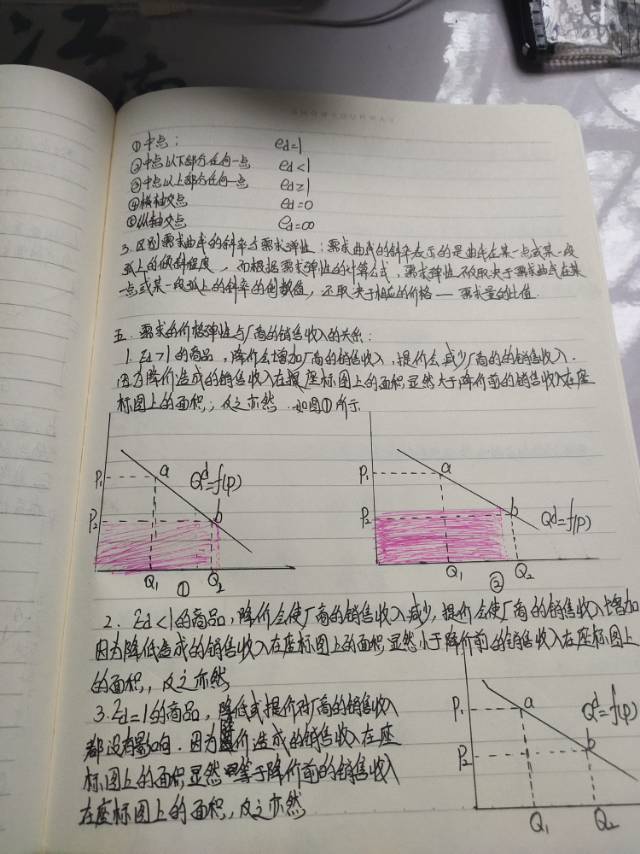 ①中点： ed=1
②中点以下部分任何一点 ed<1
③中点以上部分任何一点 ed>1
④横轴交点 ed=0
⑤纵轴交点 ed=∞
3. 区别需求曲率的斜率与需求弹性：需求曲线的斜率表示的是曲线在某一点或某一段
弧上的倾斜程度，而根据需求弹性的计算公式，需求弹性不仅取决于需求曲线在某
一点或某一段弧上的斜率的倒数值，还取决于相应的价格——需求量的比值.
五. 需求的价格弹性与厂商的销售收入的关系：
1. Ed>1的商品，降价会增加厂商的销售收入，提价会减少厂商的的销售收入.
因为降价造成的销售收入在座标图上的面积显然大于降价前的销售收入在座
标图上的面积；反之亦然. 如图①所示
P1 a Qd=f(P)
P2 b
Q1 ① Q2
P1 a
P2 b Qd=f(P)
Q1 ② Q2
2. Ed<1的商品，降价会使厂商的销售收入减少，提价会使厂商的销售收入增加
因为降低造成的销售收入在座标图上的面积显然小于降价前的销售收入在座标图上
的面积，反之亦然
3. Ed=1的商品，降低或提价对厂商的销售收入
都没有影响. 因为价造成的销售收入在座
标图上的面积显然等于降价前的销售收入
在座标图上的面积，反之亦然
P1 a Qd=f(P)
P2 b
Q1 Q2